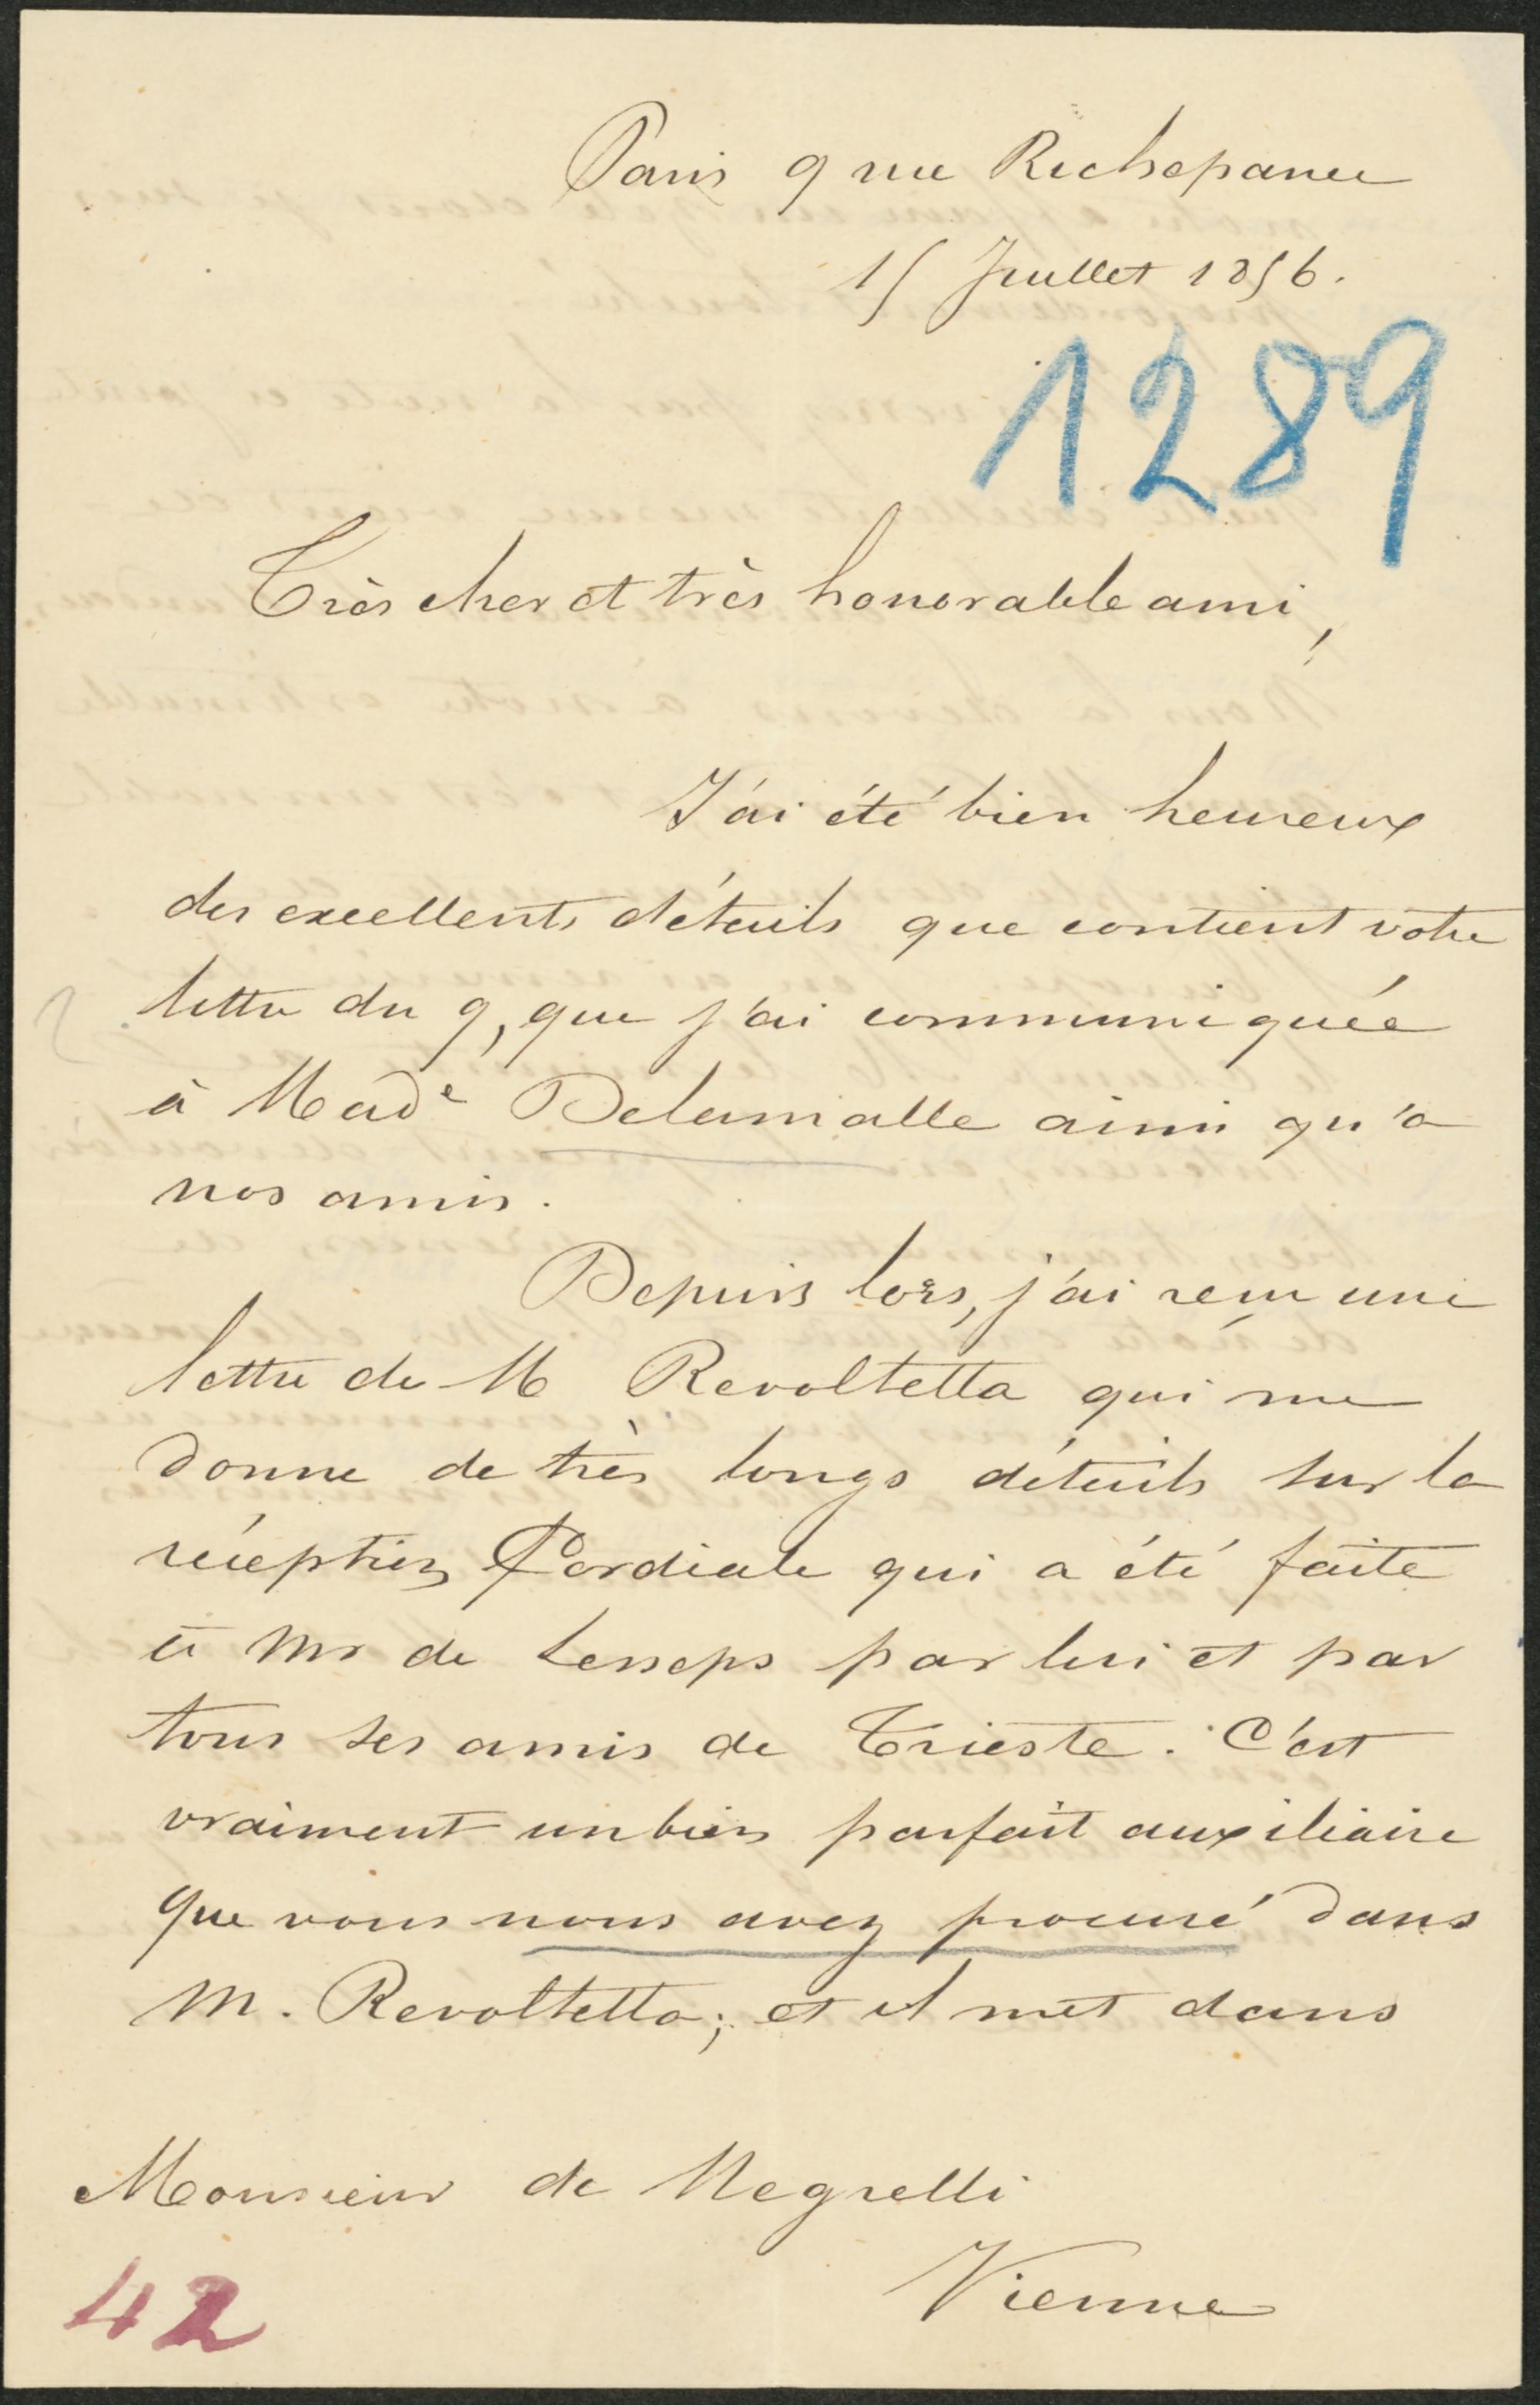 Paris 9 rue Richepance
15 Juillet 1856.
1289
Très cher et très honorable ami,
J'ai été bien heureux
des excellents détails que contient votre
lettre du 9, que j'ai communiquée
à Made Delamalle ainsi qu'à
nos amis.
Depuis lors, j'ai reçu une
lettre de M Revoltella qui me
donne de très longs détails sur la
réception Cordiale qui a été faite
à Mr de Lesseps par lui et par
tous ses amis de Trieste. C'est
vraiment un bien parfait auxiliaire
que vous nous avez procuré dans
M. Revoltella; et il met dans
Monsieur de Negrelli
Vienne
42